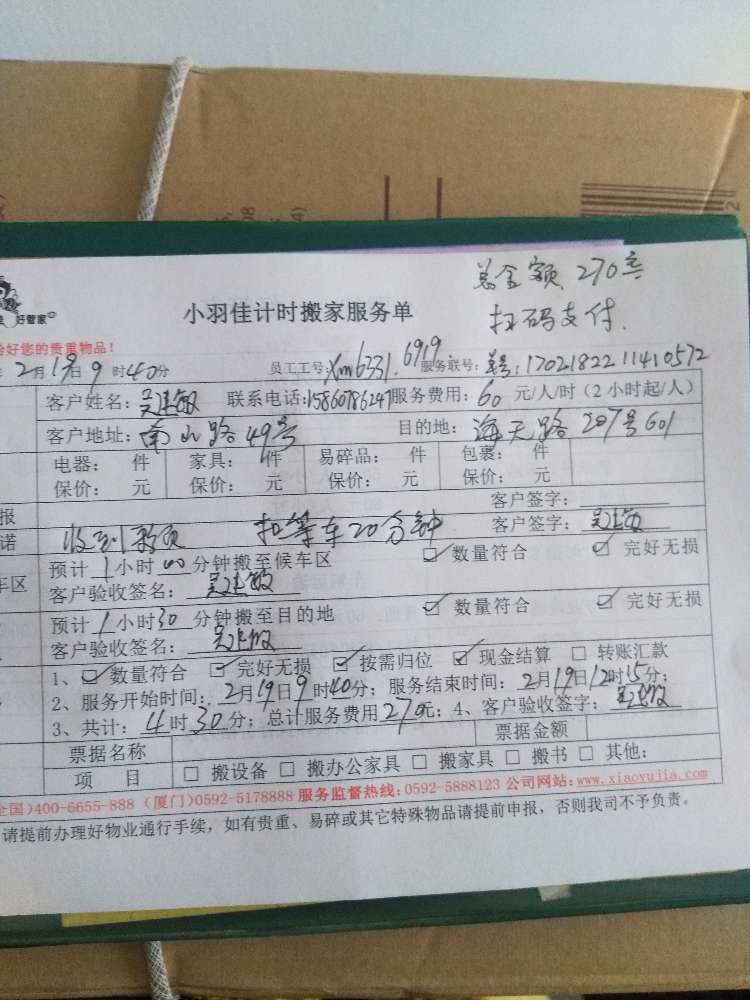 总金额 270元
扫码支付.
好管家
小羽佳计时搬家服务单
好您的贵重物品!
2月19日9时40分 员工工号:Xm6331.6919 服务联号: 单号:1702182211410572
客户姓名: 联系电话:15860786247 服务费用:60元/人/时(2小时起/人)
客户地址:南山路49号 目的地:海天路207号601
电器: 件 家具: 件 易碎品: 件 包裹: 件
保价: 元 保价: 元 保价: 元 保价: 元
报 客户签字:
诺 收到款项 扣等车20分钟 客户签字:
预计1小时00分钟搬至候车区 ☑数量符合 ☑完好无损
车区 客户验收签名:
预计1小时30分钟搬至目的地 ☑数量符合 ☑完好无损
客户验收签名:
1、☑数量符合 ☑完好无损 ☑按需归位 ☑现金结算 □转账汇款
2、服务开始时间:2月19日9时40分;服务结束时间:2月19日12时15分;
3、共计:4时30分;总计服务费用270元;4、客户验收签字:
票据名称 票据金额
项 目 □搬设备 □搬办公家具 □搬家具 □搬书 □其他:
全国)400-6655-888 (厦门)0592-5178888 服务监督热线:0592-5888123 公司网站:www.xiaoyujia.com
请提前办理好物业通行手续,如有贵重、易碎或其它特殊物品请提前申报,否则我司不予负责。